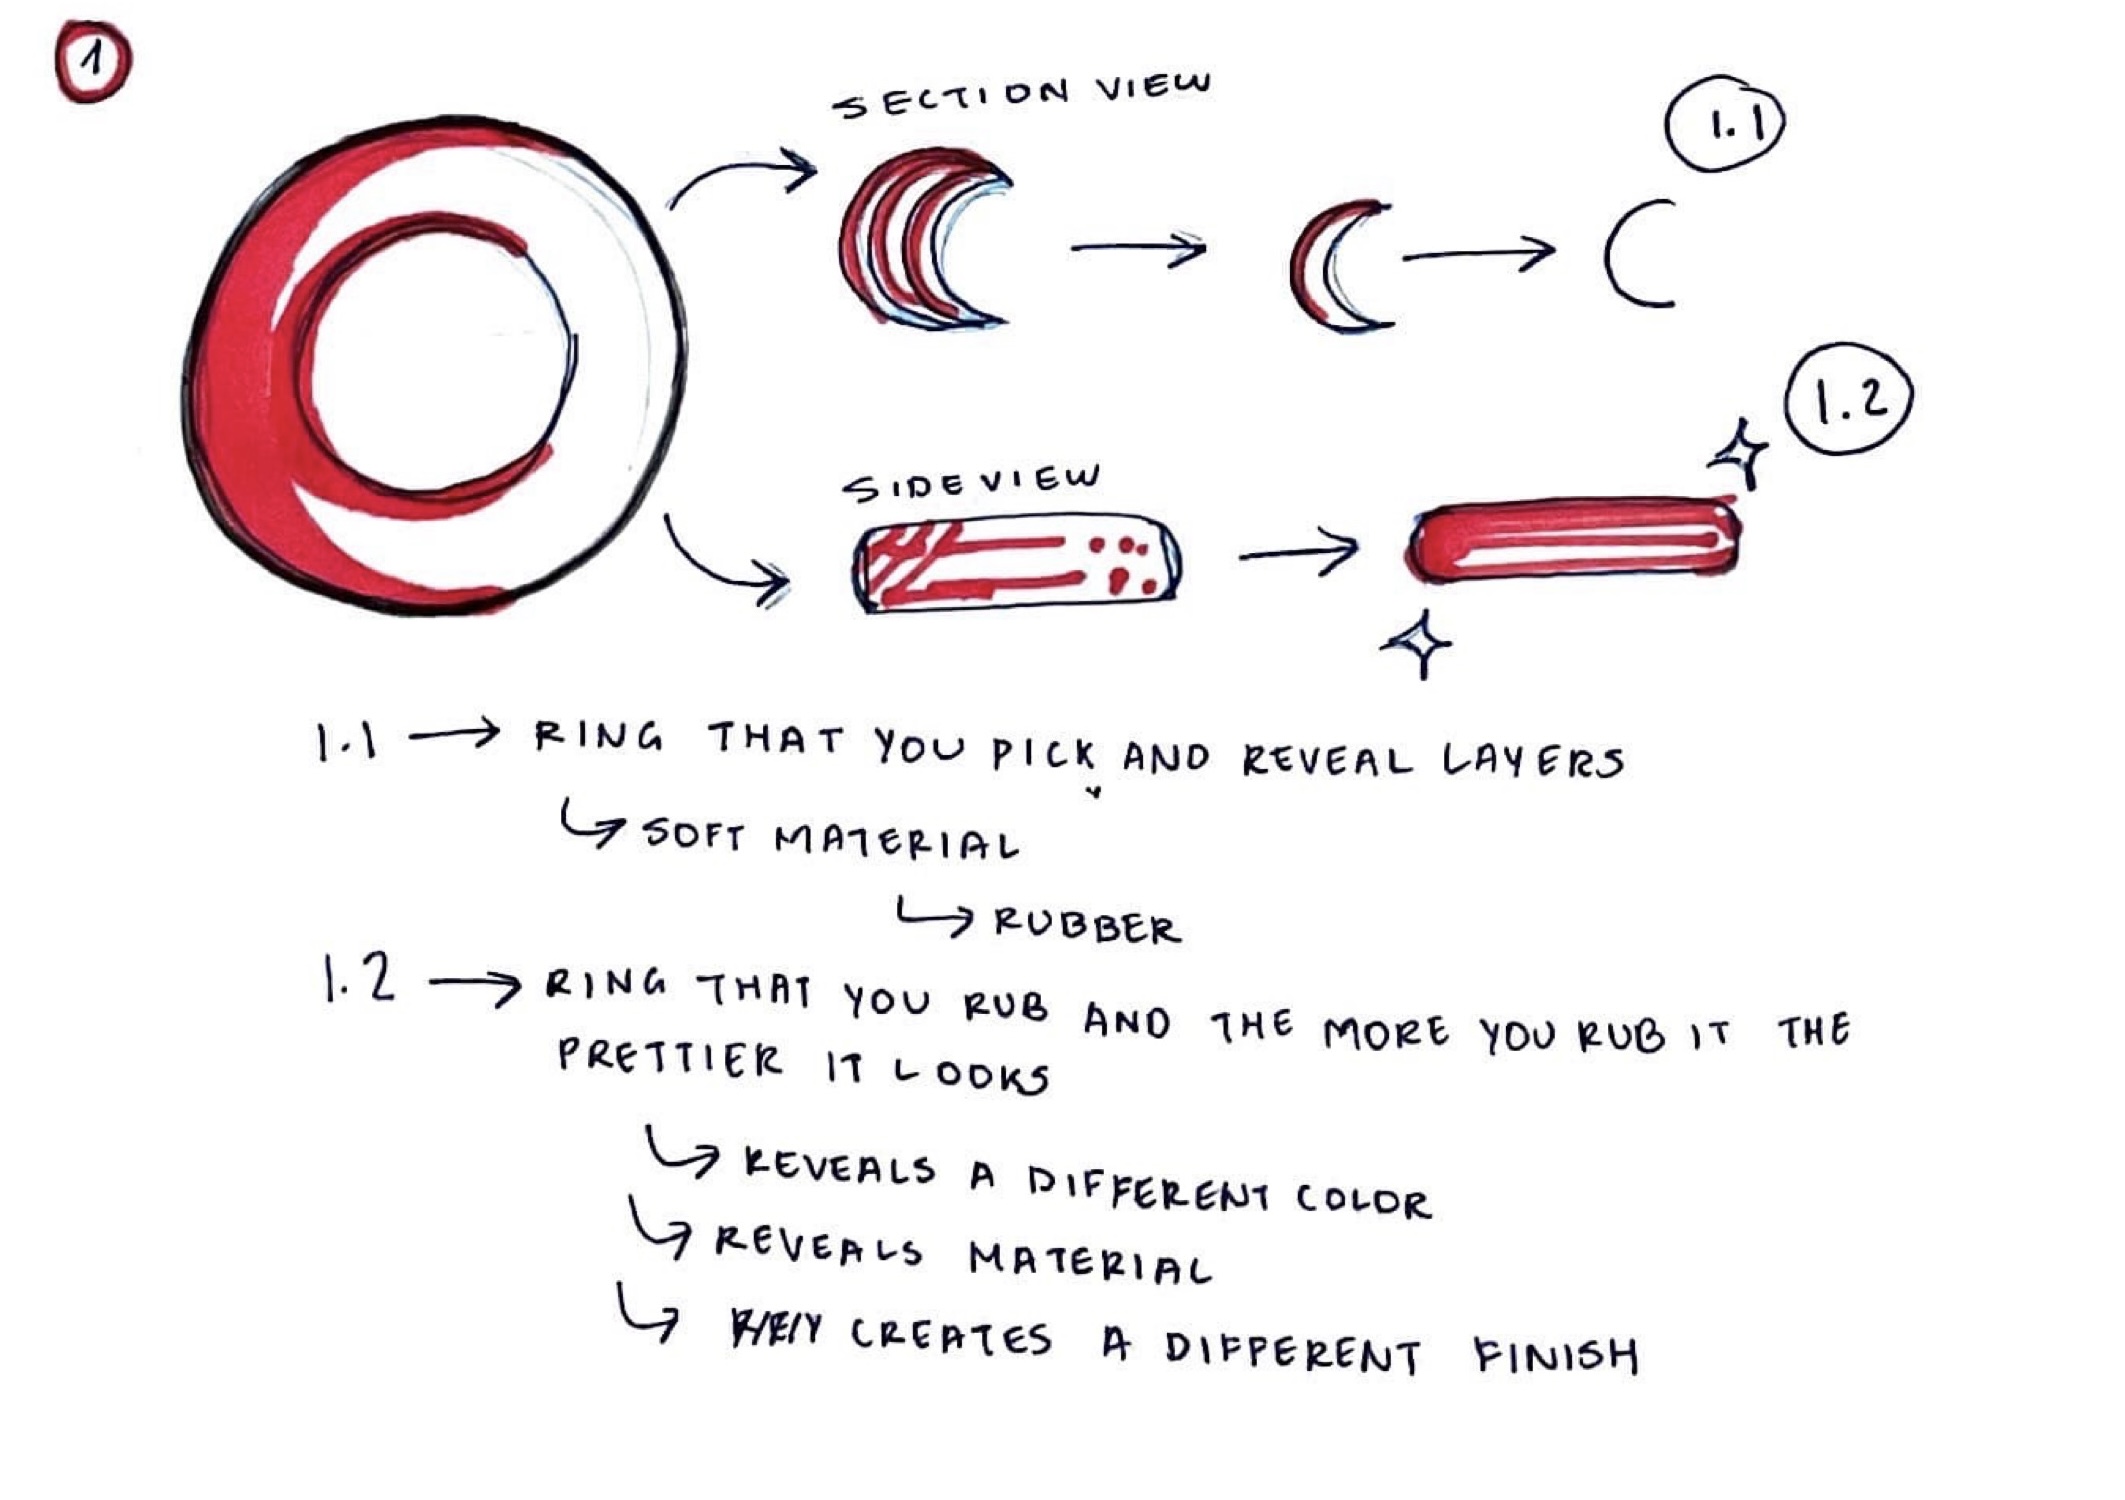 1
SECTION VIEW
1.1
1.2
SIDE VIEW
1.1 → RING THAT YOU PICK AND REVEAL LAYERS
↳ SOFT MATERIAL
↳ RUBBER
1.2 → RING THAT YOU RUB AND THE MORE YOU RUB IT THE
PRETTIER IT LOOKS
↳ REVEALS A DIFFERENT COLOR
↳ REVEALS MATERIAL
↳ CREATES A DIFFERENT FINISH